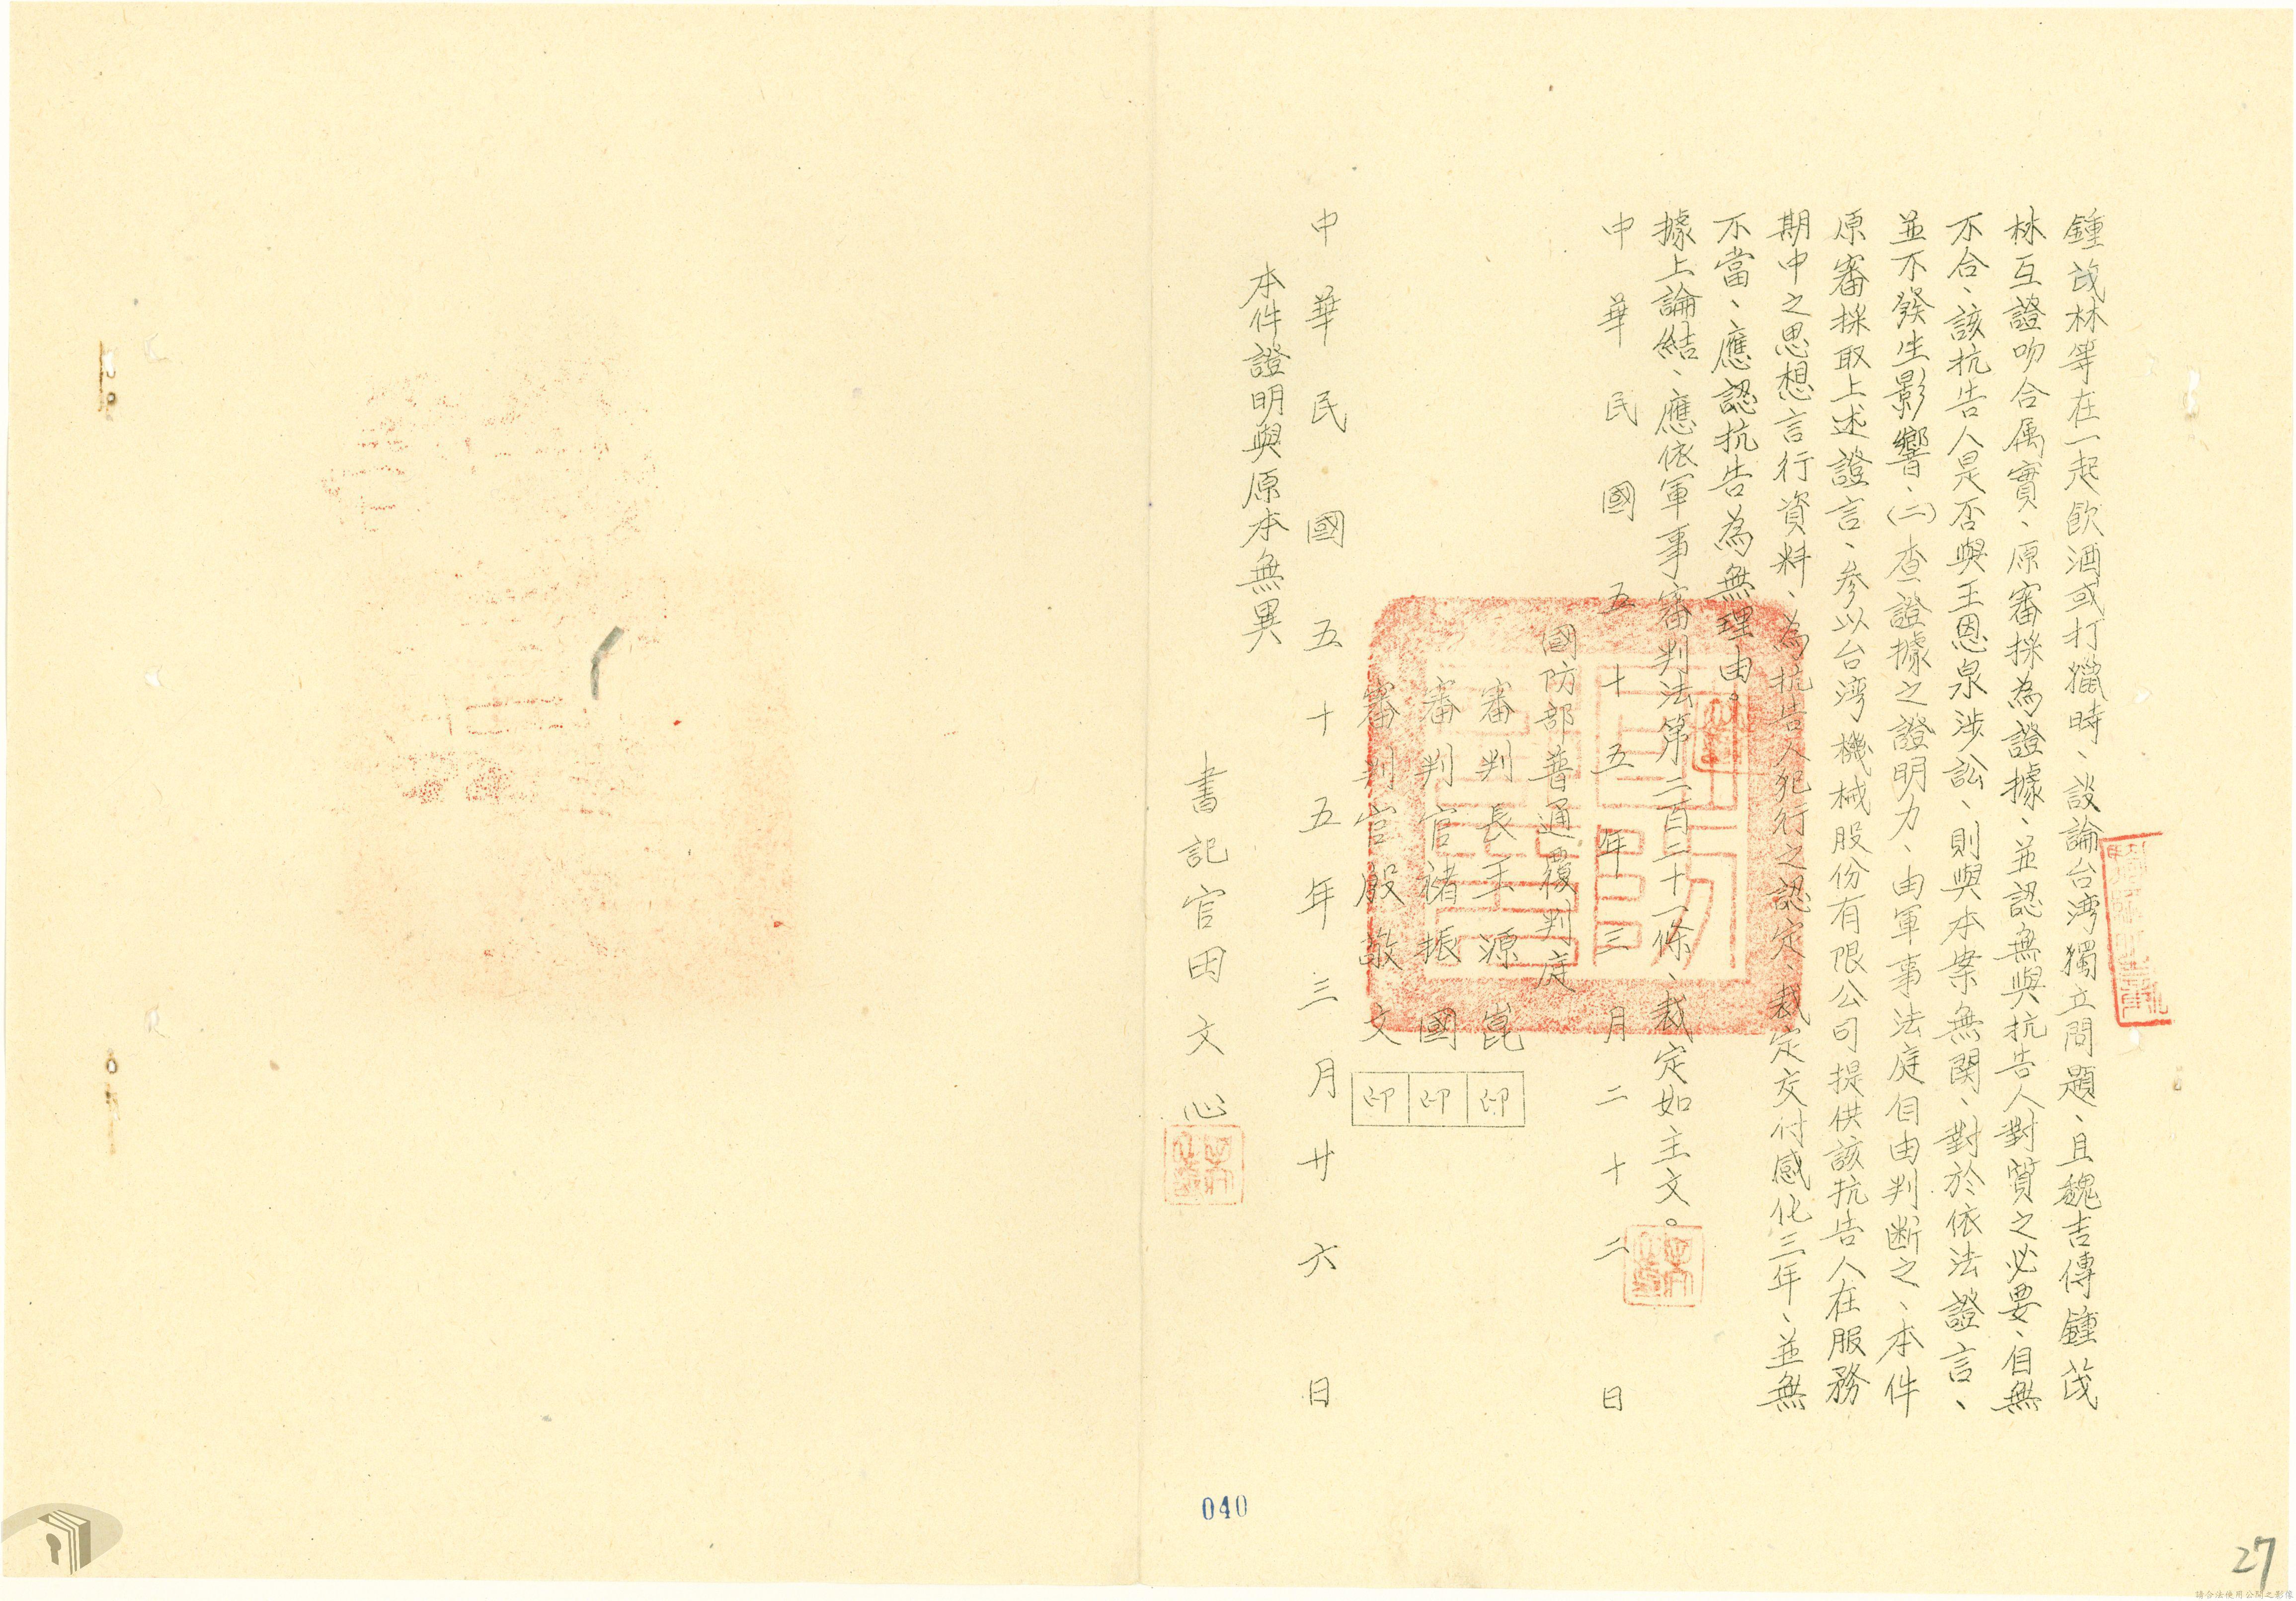 鍾茂林等在一起飲酒或打獵時、談論台湾獨立問題、且魏吉傳鍾茂
林互證吻合属實、原審採為證據、並認無與抗告人對質之必要、自無
不合、該抗告人是否與王恩泉涉訟、則與本案無関、對於依法證言、
並不發生影響、(二)查證據之證明力、由軍事法庭自由判断之、本件
原審採取上述證言、參以台湾機械股份有限公司提供該抗告人在服務
期中之思想言行資料、為抗告人犯行之認定、裁定交付感化三年、並無
不當、應認抗告為無理由。
據上論結、應依軍事審判法第二百二十一條、裁定如主文。
中華民國五十五年三月二十二日
國防部普通覆判庭
審判長王源崑 印
審判官褚振國 印
審判官殷敬文 印
中華民國五十五年三月廿六日
本件證明與原本無異
書記官田文心
040
27
請合法使用公開之影像